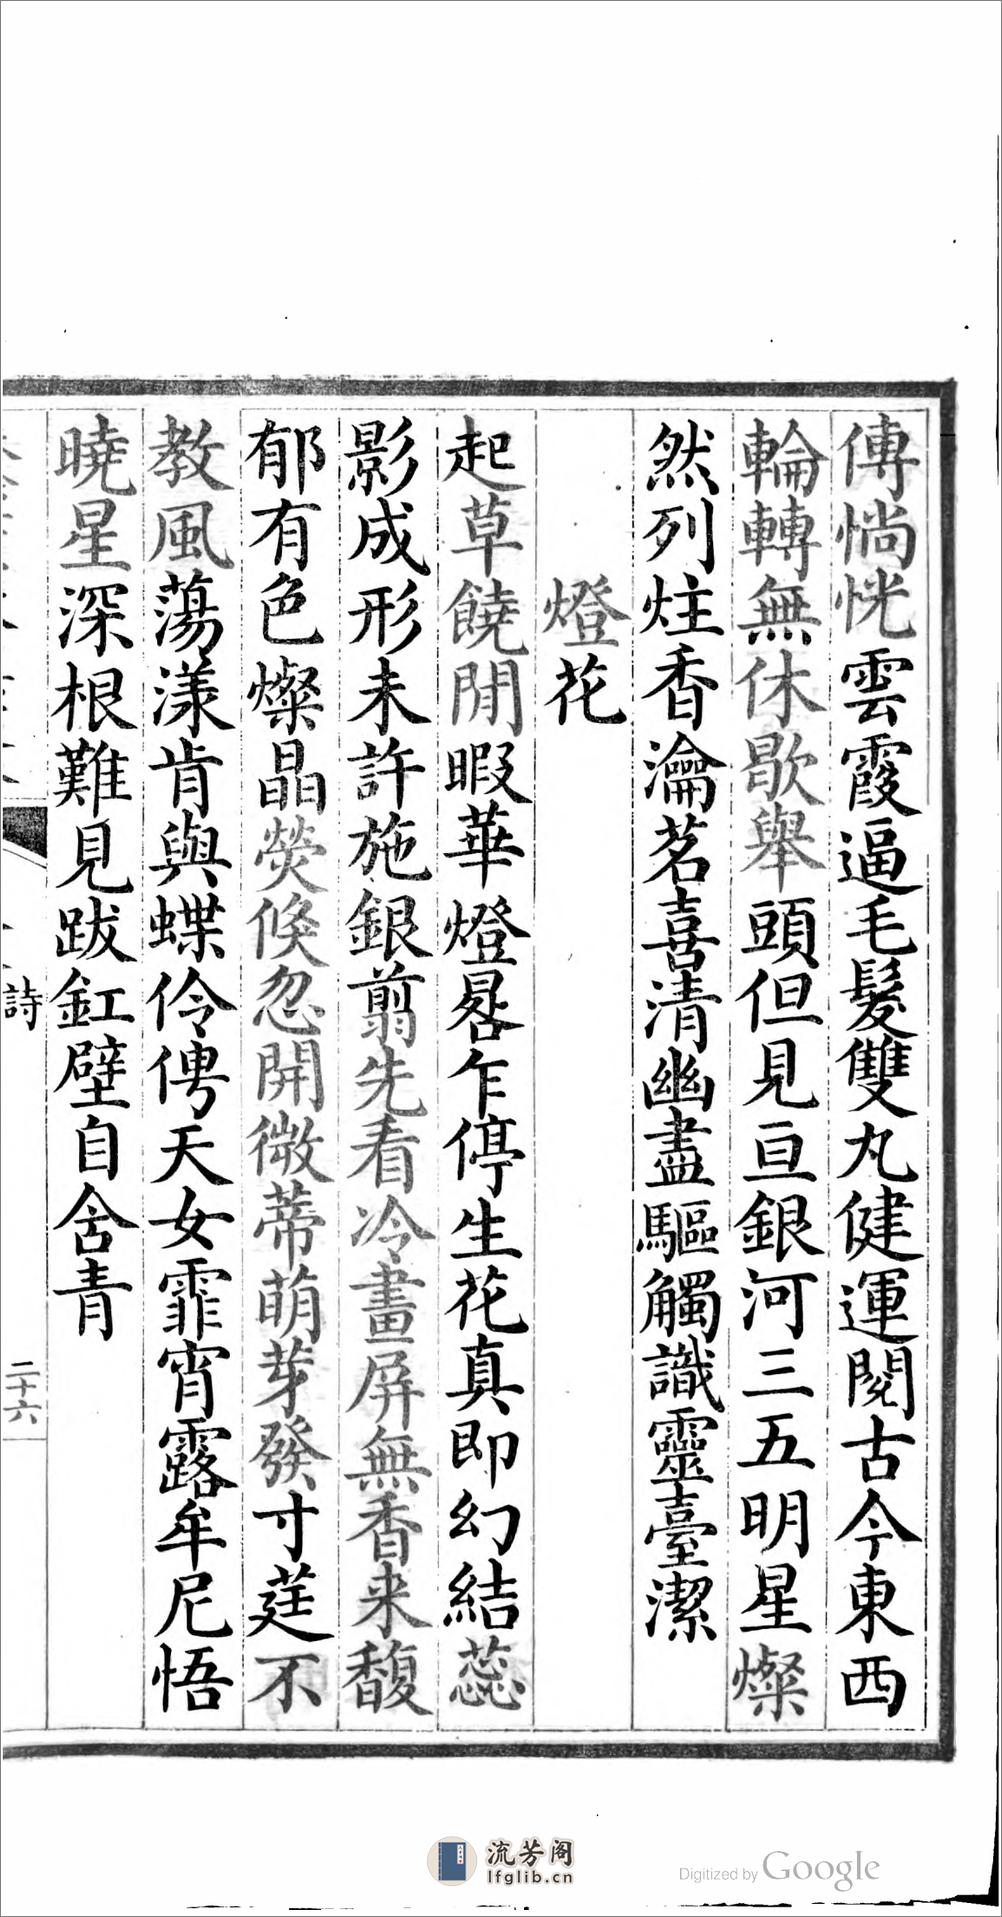 傳惝恍雲霞逼毛髮雙丸健運閱古今東西
輪轉無休歇舉頭但見亘銀河三五明星燦
然列炷香瀹茗喜清幽盡驅觸識靈臺潔
燈花
起草饒閒暇華燈晷乍停生花真即幻結蕊
影成形未許施銀翦先看冷畫屏無香来馥
郁有色燦晶熒倏忽開微蒂萌芽發寸莛不
教風蕩漾肯與蝶伶俜天女霏宵露牟尼悟
曉星深根難見跋釭壁自舍青
詩
二十六
流芳阁
lfglib.cn
Digitized by Google